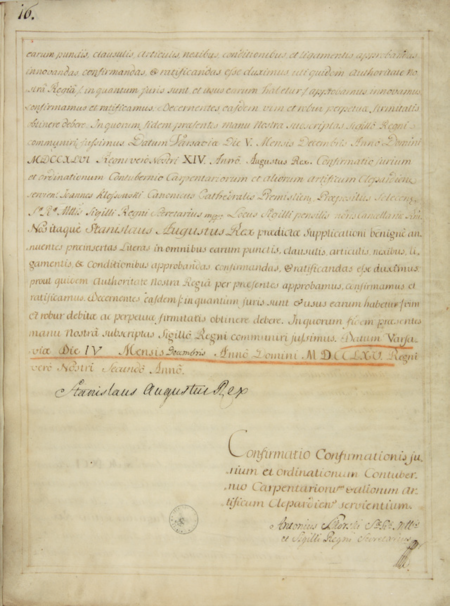 16.
earum punctis, clausulis, articulis, nexibus, conditionibus et ligamentis, approbandas
innovandas confirmandas, & ratificandas esse duximus uti quidem Authoritate no
strâ Regiâ in quantum juris sunt et usus earum habetur approbamus innovamus
confirmamus et ratificamus. Decernentes easdem vim et robur perpetuæ firmitatis
obtinere debere. In quorum fidem præsentes manu Nostra subscriptas Sigillo Regni
communiri jussimus Datum Varsaviæ Die V. Mensis Decembris Anno Domini
MDCCXLVI Regni verò Nostri XIV. Annô. Augustus Rex. Confirmatio Jurium
et ordinationum Contubernio Carpentariorum et aliorum artificum Clepardiæ
Joannes Canonicus Cathedralis Præpositus
Sigilli Regni Secretarius Locus Sigilli
Nos itaque Stanislaus Augustus Rex prædictæ Supplicationi benignè an
nuentes præinsertas Literas in omnibus earum punctis, clausulis, articulis, nexibus, li
gamentis, & Conditionibus approbandas confirmandas, & ratificandas esse duximus
prout quidem Authoritate Nostra Regiâ per præsentes approbamus, confirmamus et
ratificamus. Decernentes Easdem in quantum juris sunt & usus earum habetur vim
et robur debitæ ac perpetuæ firmitatis obtinere debere. In quorum fidem præsentes
manu nostrâ subscriptas Sigillô Regni communiri jussimus. Datum Varsa
viæ Die IV Mensis Decembris Annô Domini MDCCLXV. Regni
verò Nostri Secundô Annô.
Stanislaus Augustus Rex
Confirmatio Confirmationis ju
rium et ordinationum Contuber
nio Carpentariorum & aliorum ar
tificum Clepardiens servientium.
Antonius Sikorski
et Sigilli Regni Secretarius